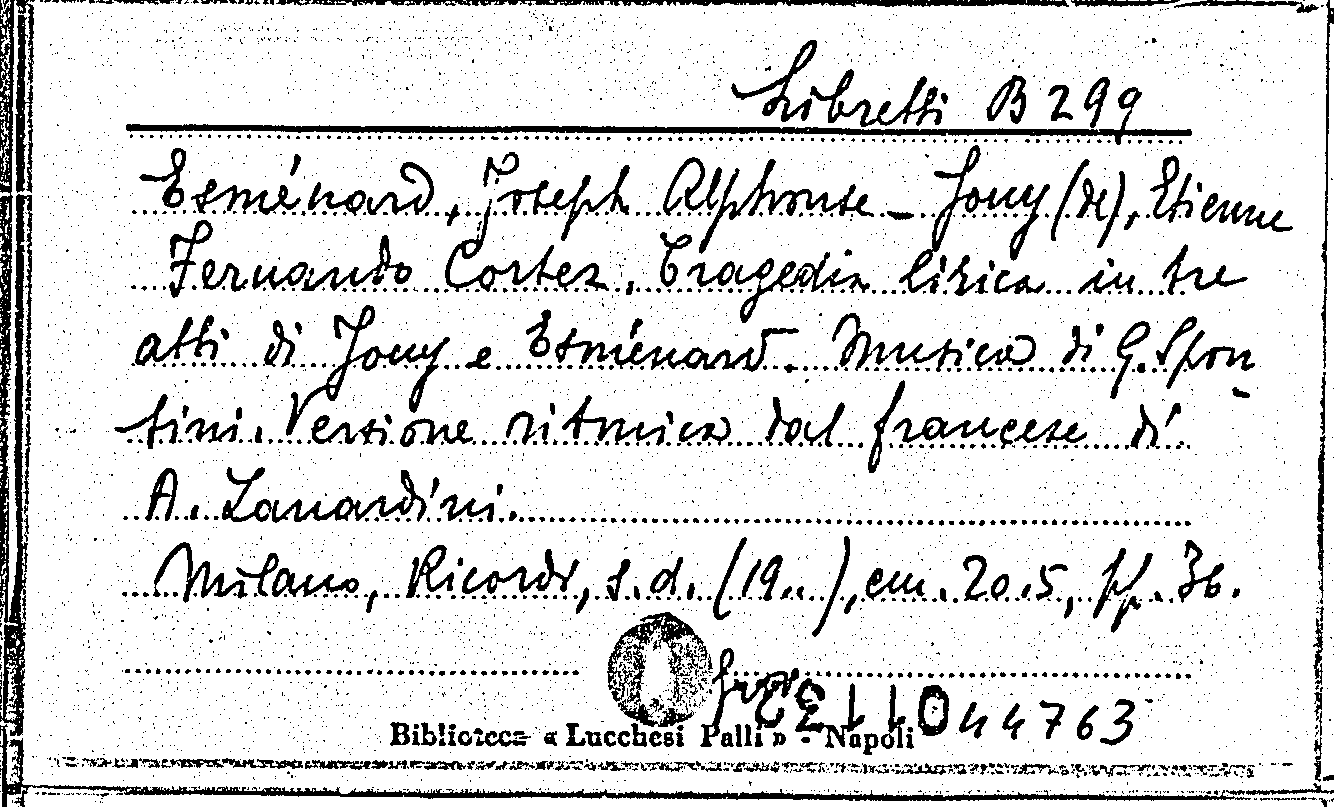 Libretti B 299
Esménard, Joseph Alphonse - Jouy (de), Etienne
Fernando Cortez. Tragedia lirica in tre
atti di Jouy e Esménard. Musica di G. Spon-
tini. Versione ritmica dal francese di
A. Lanardini.
Milano, Ricordi, s.d. (19..), cm. 20.5, pp. 36.
44763
Biblioteca « Lucchesi Palli » - Napoli